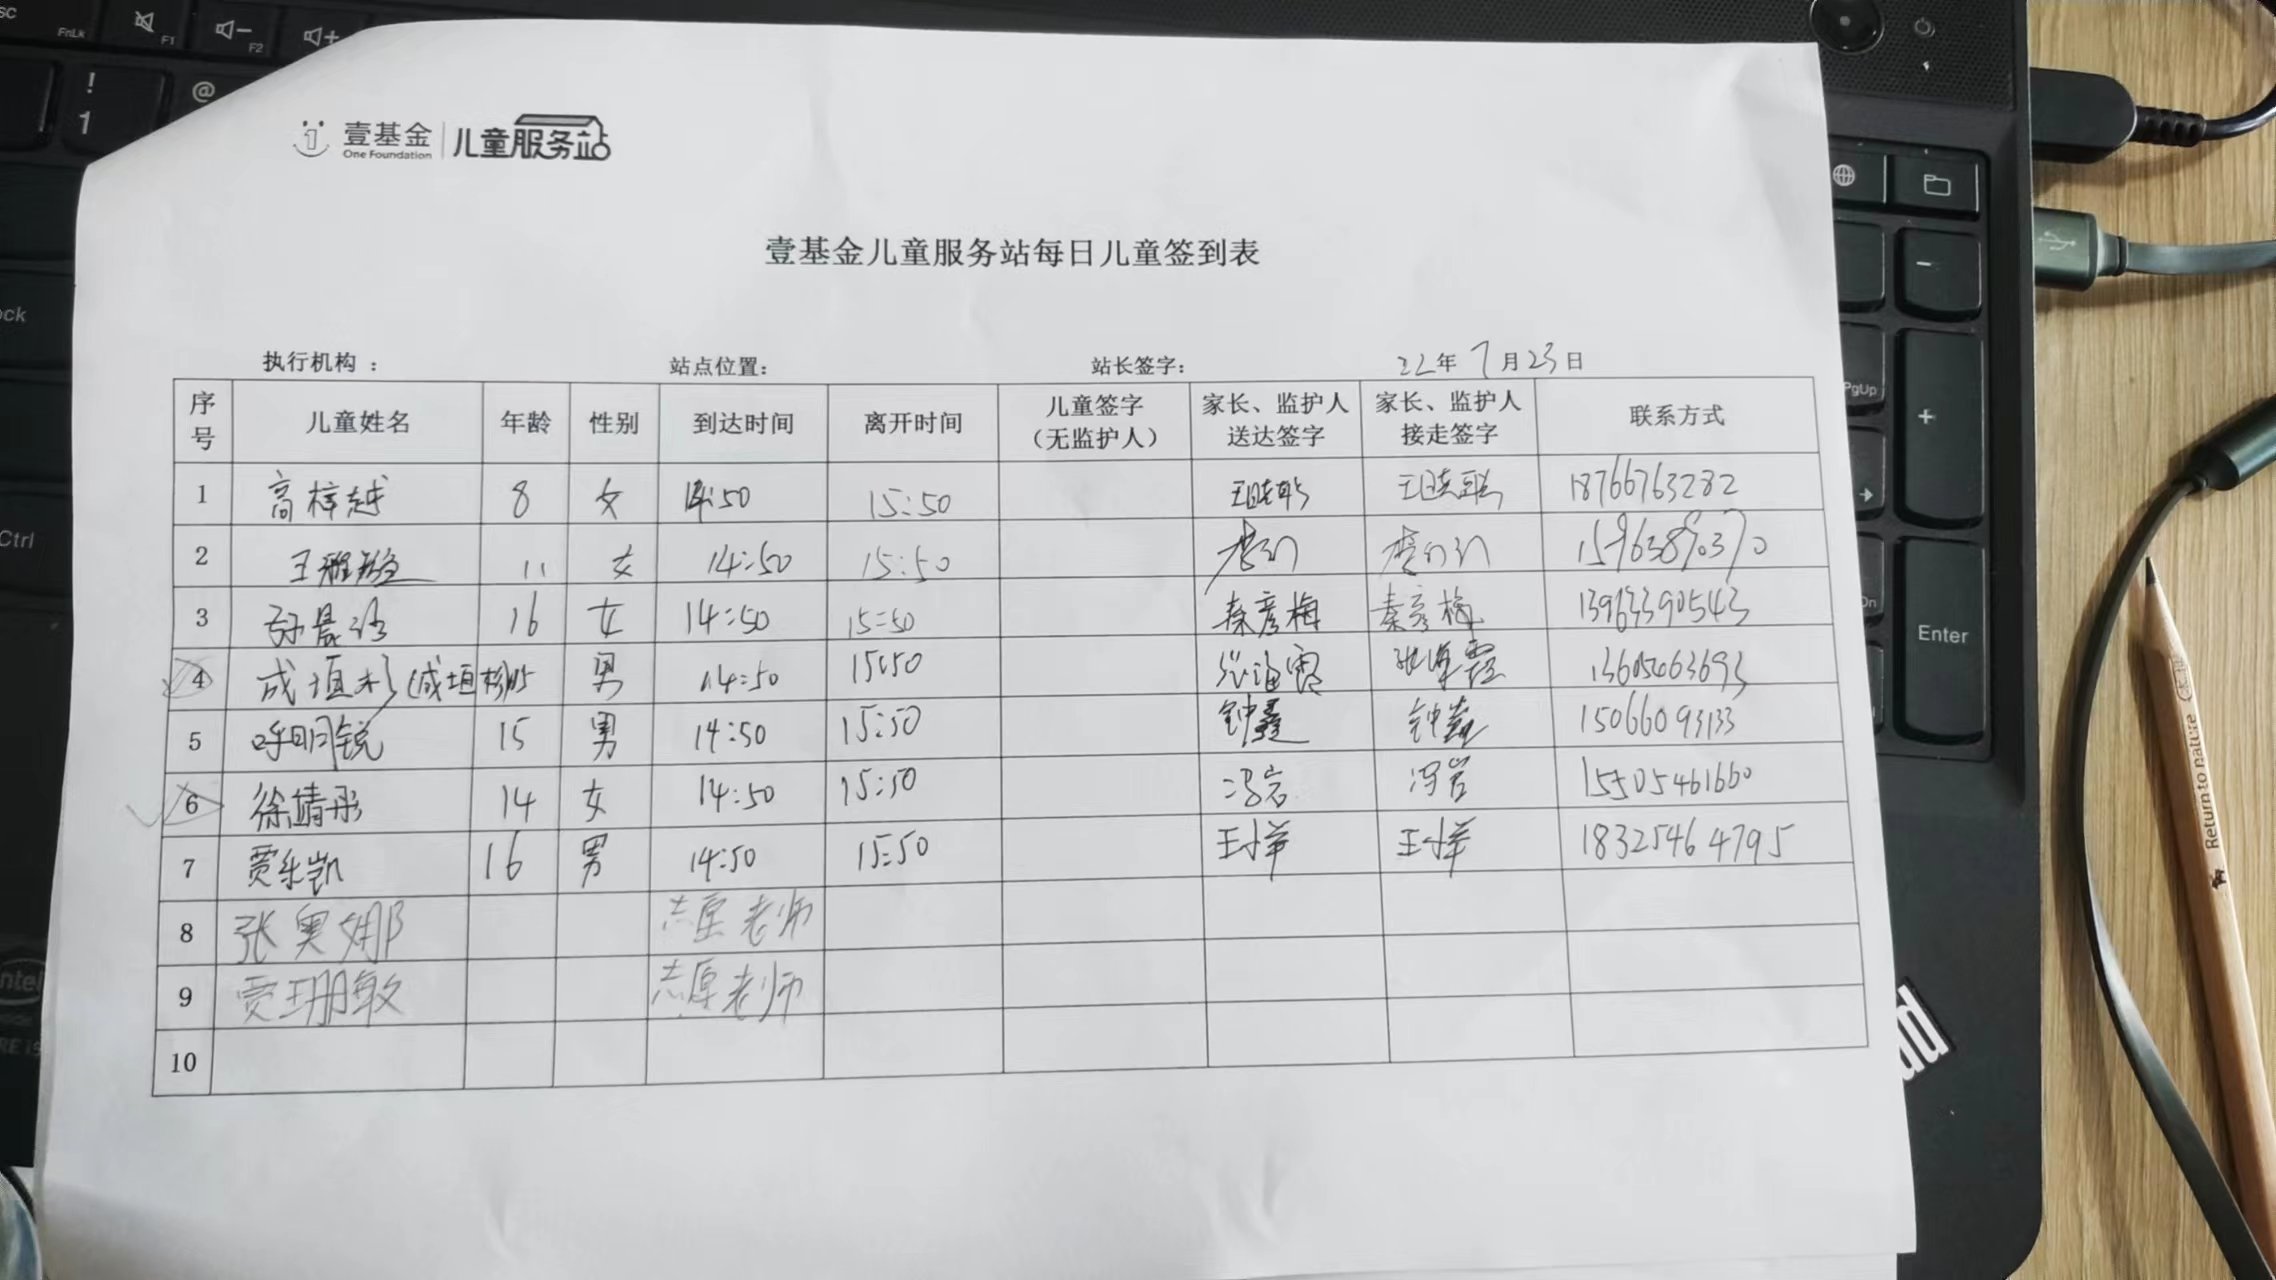 壹基金 儿童服务站
One Foundation
壹基金儿童服务站每日儿童签到表
执行机构： 站点位置： 站长签字： 22年7月23日
序号 儿童姓名 年龄 性别 到达时间 离开时间 儿童签字（无监护人） 家长、监护人送达签字 家长、监护人接走签字 联系方式
1 高梓越 8 女 14:50 15:50 18766763282
2 王 11 女 14:50 15:50 15963890370
3 孙晨 16 女 14:50 15:50 秦彦梅 秦彦梅 13963390543
4 成垣杉(成垣杉) 15 男 14:50 15:50 张海霞 张海霞 13605463693
5 呼明锐 15 男 14:50 15:50 钟鑫 钟鑫 15066093133
6 徐婧彤 14 女 14:50 15:50 冯岩 冯岩 15505461660
7 贾乐凯 16 男 14:50 15:50 王小苹 王小苹 18325464795
8 张奥娜 志愿老师
9 贾珊敏 志愿老师
10
FnLk
F1
F2
!
1
@
Ctrl
PgUp
+
-
Enter
Return to nature